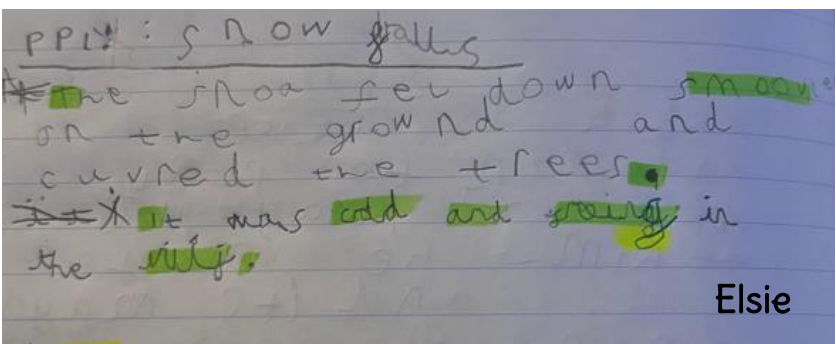 PPLY: snow falls
the snoa fel down smoov
on the grownd and
cuvred the trees.
it was cold and froing in
the vilij.
Elsie